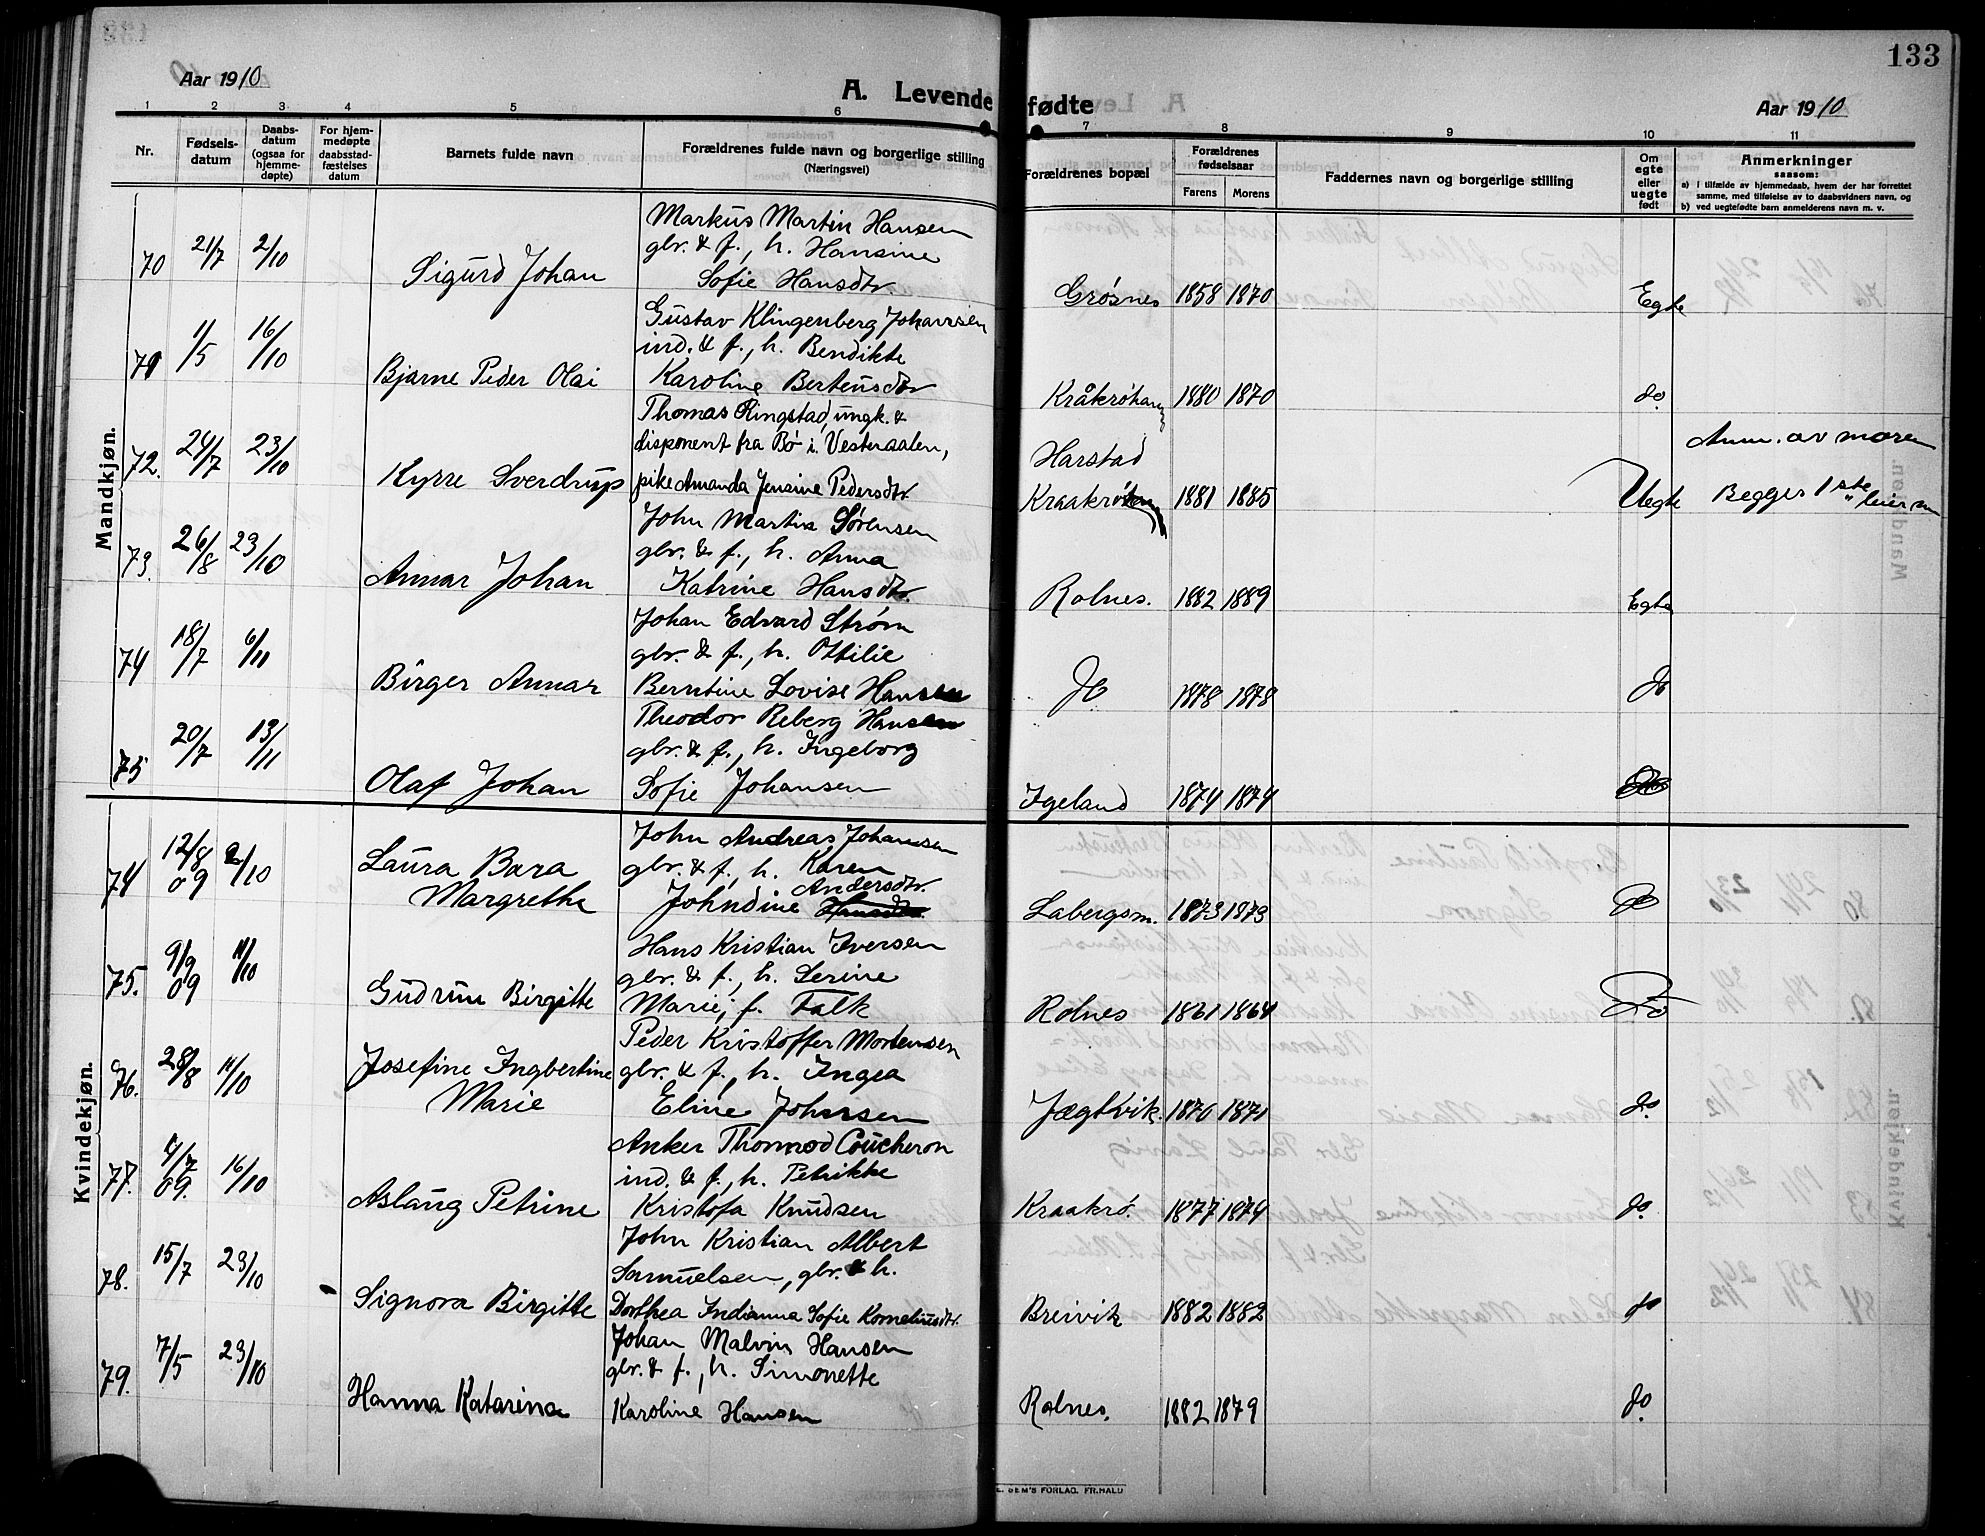 Aar 1910
A. Levende fødte
Aar 1910
133
1 2 3 4 5 6 7 8 9 10 11
Nr.
Fødsels-
datum
Daabs-
datum
(ogsaa for
hjemme-
døpte)
For hjem-
medøpte
daabsstad-
fæstelses
datum
Barnets fulde navn
Forældrenes fulde navn og borgerlige stilling
(Næringsvei)
Forældrenes bopæl
Forældrenes
fødselsaar
Farens Morens
Faddernes navn og borgerlige stilling
Om
egte
eller
uegte
født
Anmerkninger
saasom:
a) i tilfælde av hjemmedaab, hvem der har forrettet
samme, med tilføielse av to daabsvidners navn, og
b) ved uegtefødte barn anmelderens navn m. v.
Mandkjøn.
Markus Martin Hansen
gbr. & f., h. Hansine
70 21/7 2/10 Sigurd Johan Sofie Hansdtr Grøsnes 1858 1870 Egte
Gustav Klingenberg Johansen
ind. & f., h. Bendikte
71 1/5 16/10 Bjarne Peder Olai Karoline Berteusdtr 1880 1870 do
Thomas Ringstad, ungk. &
disponent fra Bø i Vesteraalen, Harstad Anm. av moren
72. 24/7 23/10 Kyrre Sverdrup pike Amanda Jensine Pedersdtr. 1881 1885 Uegte Begges 1ste
John Martin Sørensen
gbr. & f., h. Anna
73. 26/8 23/10 Annar Johan Katrine Hansdtr. Rolnes. 1882 1889 Egte
Johan Edvard Strøm
gbr. & f., h. Ottilie
74 18/7 6/11 Birger Annar Berntine Lovise Hansen do 1878 1878 do
Theodor Reberg Hansen
gbr. & f., h. Ingeborg
75 20/7 13/11 Olaf Johan Sofie Johansen Igeland 1874 1874 do
Kvindekjøn.
John Andreas Johansen
74 12/8 09 2/10 Laura Bara gbr. & f., h. Karen
Andersdtr.
Margrethe Johndine Hansdtr. Labergsm. 1873 1873 do
Hans Kristian Iversen
gbr. & f., h. Serine
75. 9/9 09 11/10 Gudrun Birgitte Marie, f. Falk Rolnes 1861 1864 do
Peder Kristoffer Mortensen
76. 28/8 11/10 Josefine Ingbertine gbr. & f., h. Ingea
Marie Eline Johansen Jægtvik. 1870 1871 do.
Anker Thormod Coucheron
ind. & f., h. Petrikke
77. 4/7 09. 16/10 Aslaug Petrine Kristofa Knudsen Kraakrø. 1877 1874 do.
John Kristian Albert
Samuelsen, gbr. & h.
78. 15/7 23/10 Signora Birgitte Dorthea Indianna Sofie Korneliusdtr. Breivik 1882 1882 do
Johan Malvin Hansen
gbr. & f., h. Simonette
79. 7/5 23/10 Hanna Katarina Karoline Hansen Rolnes. 1882 1879 do.
SEM'S FORLAG. FR.HALD